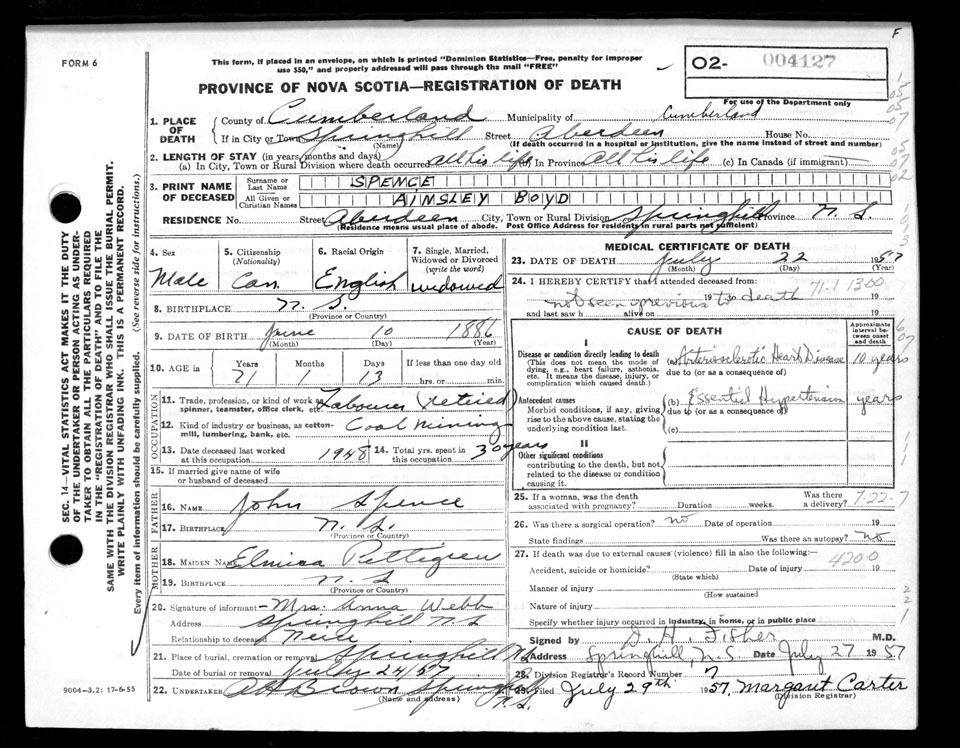 F
FORM 6
This form, if placed in an envelope, on which is printed "Dominion Statistics—Free, penalty for improper
use $50," and properly addressed will pass through the mail "FREE"
O2- 004127
For use of the Department only
PROVINCE OF NOVA SCOTIA—REGISTRATION OF DEATH
1. PLACE OF DEATH County of Cumberland Municipality of Cumberland
If in City or Town Springhill (Name) Street Aberdeen House No.
(If death occurred in a hospital or institution, give the name instead of street and number)
2. LENGTH OF STAY (in years, months and days)
(a) In City, Town or Rural Division where death occurred all his life (b) In Province all his life (c) In Canada (if immigrant)
3. PRINT NAME OF DECEASED Surname or Last Name SPENCE
All Given or Christian Names AINSLEY BOYD
RESIDENCE No. Street Aberdeen City, Town or Rural Division Springhill Province N.S.
(Residence means usual place of abode. Post Office Address for residents in rural parts not sufficient)
4. Sex Male
5. Citizenship (Nationality) Can.
6. Racial Origin English
7. Single, Married, Widowed or Divorced (write the word) widowed
8. BIRTHPLACE N.S.
(Province or Country)
9. DATE OF BIRTH June 10 1886
(Month) (Day) (Year)
10. AGE in Years Months Days If less than one day old
71 1 13 hrs. or min.
OCCUPATION
11. Trade, profession, or kind of work as spinner, teamster, office clerk, etc. Labourer (retired)
12. Kind of industry or business, as cotton-mill, lumbering, bank, etc. Coal mining
13. Date deceased last worked at this occupation 1948 14. Total yrs. spent in this occupation 30 years
15. If married give name of wife or husband of deceased
FATHER
16. NAME John Spence
17. BIRTHPLACE N.S.
(Province or Country)
MOTHER
18. MAIDEN NAME Elmira Pettigrew
19. BIRTHPLACE N.S
(Province or Country)
20. Signature of informant Mrs. Anna Webb
Address Springhill N.S
Relationship to deceased Neice
21. Place of burial, cremation or removal Springhill N.S
Date of burial or removal July 24/57
22. UNDERTAKER A H Brown Springhill N.S.
(Name and address)
MEDICAL CERTIFICATE OF DEATH
23. DATE OF DEATH July 22 1957
(Month) (Day) (Year)
24. I HEREBY CERTIFY that I attended deceased from: 71.1 1300
not seen previous 19 to death 19
and last saw h alive on 19
CAUSE OF DEATH
Approximate interval between onset and death
I
Disease or condition directly leading to death
(This does not mean the mode of dying, e.g., heart failure, asthenia, etc. It means the disease, injury, or complication which caused death.)
(a) Arteriosclerotic Heart Disease 10 years
due to (or as a consequence of)
Antecedent causes
Morbid conditions, if any, giving rise to the above cause, stating the underlying condition last.
(b) Essential Hypertension years
due to (or as a consequence of)
(c)
II
Other significant conditions
contributing to the death, but not related to the disease or condition causing it.
25. If a woman, was the death associated with pregnancy? Duration weeks. Was there a delivery? 7-22-7
26. Was there a surgical operation? no Date of operation 19
State findings Was there an autopsy? no
27. If death was due to external causes (violence) fill in also the following:— 420.0
Accident, suicide or homicide? Date of injury 19
(State which)
Manner of injury
(How sustained
Nature of injury
Specify whether injury occurred in industry, in home, or in public place
Signed by D. H. Fisher M.D.
Address Springhill, N.S. Date July 27 1957
28. Division Registrar's Record Number 7
29. Filed July 29th 1957, Margaret Carter
(Division Registrar)
SEC. 14—VITAL STATISTICS ACT MAKES IT THE DUTY
OF THE UNDERTAKER OR PERSON ACTING AS UNDER-
TAKER TO OBTAIN ALL THE PARTICULARS REQUIRED
IN THE "REGISTRATION OF DEATH" AND TO FILE THE
SAME WITH THE DIVISION REGISTRAR WHO SHALL ISSUE THE BURIAL PERMIT.
WRITE PLAINLY WITH UNFADING INK. THIS IS A PERMANENT RECORD.
Every item of information should be carefully supplied. (See reverse side for instructions.)
9004—3.2: 17-6-55